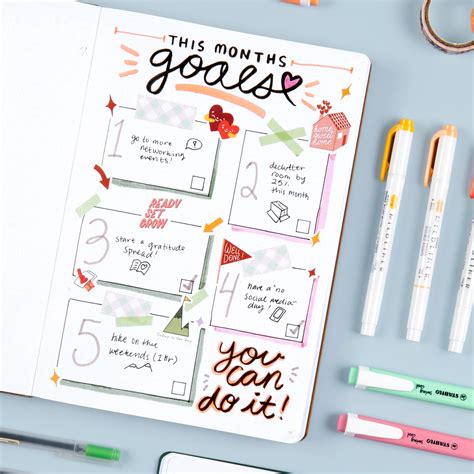 THIS MONTHS
goals
1
go to more
networking
events!
?
HOME
SWEET
HOME
2
declutter
room by
25%
this month
READY
SET
GROW
3
start a gratitude
spread!
WELL
DONE!
4
have a "no
social media"
day!
5
hike on the
weekends (1 hr)
you
can
do it!
MILDLINER
STABILO
swing cool
STABILO
swing cool